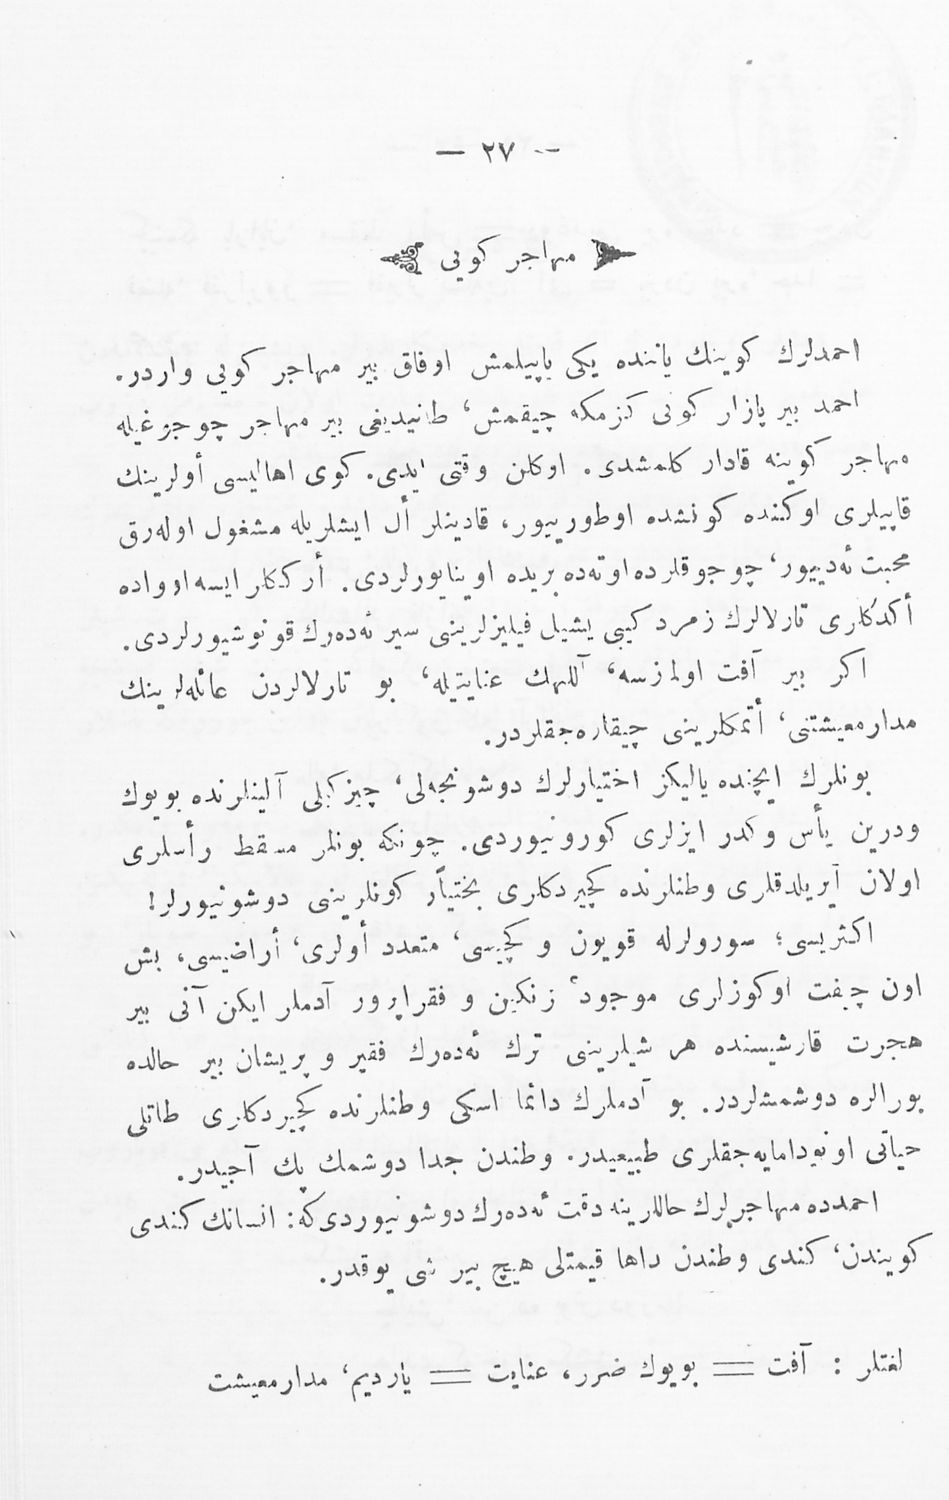 — ٢٧ —
مهاجر كویی
احمدلرك كوینك یاننده یكی یاپیلمش اوفاق بیر مهاجر كویی واردر.
احمد بیر پازار كونی كزمكه چیقمش، طانیدیغی بیر مهاجر چوجوغیله
مهاجر كوینه قادار كلمشدی. اوكلن وقتی ایدی. كوی اهالیسی أولرینك
قاپیلری اوكنده كونشده اوطورییور، قادینلر أل ایشلریله مشغول اوله‌رق
محبت ئه‌دییور، چوجوقلرده اوته‌ده بریده اوینایورلردی. أرككلر ایسه اوواده
أكدكلری تارلالرك زمرد كیبی یشیل فیلیزلرینی سیر ئه‌ده‌رك قونوشیورلردی.
اكر بیر آفت اولمازسه، آللهك عنایتیله، بو تارلالردن عائله‌لرینك
مدار معیشتنی، أتمكلرینی چیقاره‌جقلردر.
بونلرك ایچنده یالیكز اختیارلرك دوشونجه‌لی، چیزكیلی آلینلرنده بویوك
ودرین یأس وكدر ایزلری كورونیوردی. چونكه بونلر مسقط رأسلری
اولان آیریلدقلری وطنلرنده كچیردكلری بختیار كونلرینی دوشونیورلر!
اكثریسی؛ سورولرله قویون و كچیسی، متعدد أولری، أراضیسی، بش
اون چیفت اوكوزلری موجود، زنكین و فقراپرور آدملر ایكن آنی بیر
هجرت قارشیسنده هر شیلرینی ترك ئه‌ده‌رك فقیر و پریشان بیر حالده
بورالره دوشمشلردر. بو آدملرك دائما اسكی وطنلرنده كچیردكلری طاتلی
حیاتی اونودامایه‌جقلری طبیعیدر. وطندن جدا دوشمك پك آجیدر.
احمدده مهاجرلرك حاللرینه دقت ئه‌ده‌رك دوشونیوردی‌كه: انسانك كندی
كویندن، كندی وطندن داها قیمتلی هیچ بیر شی یوقدر.
لغتلر : آفت = بویوك ضرر، عنایت = یاردیم، مدار معیشت